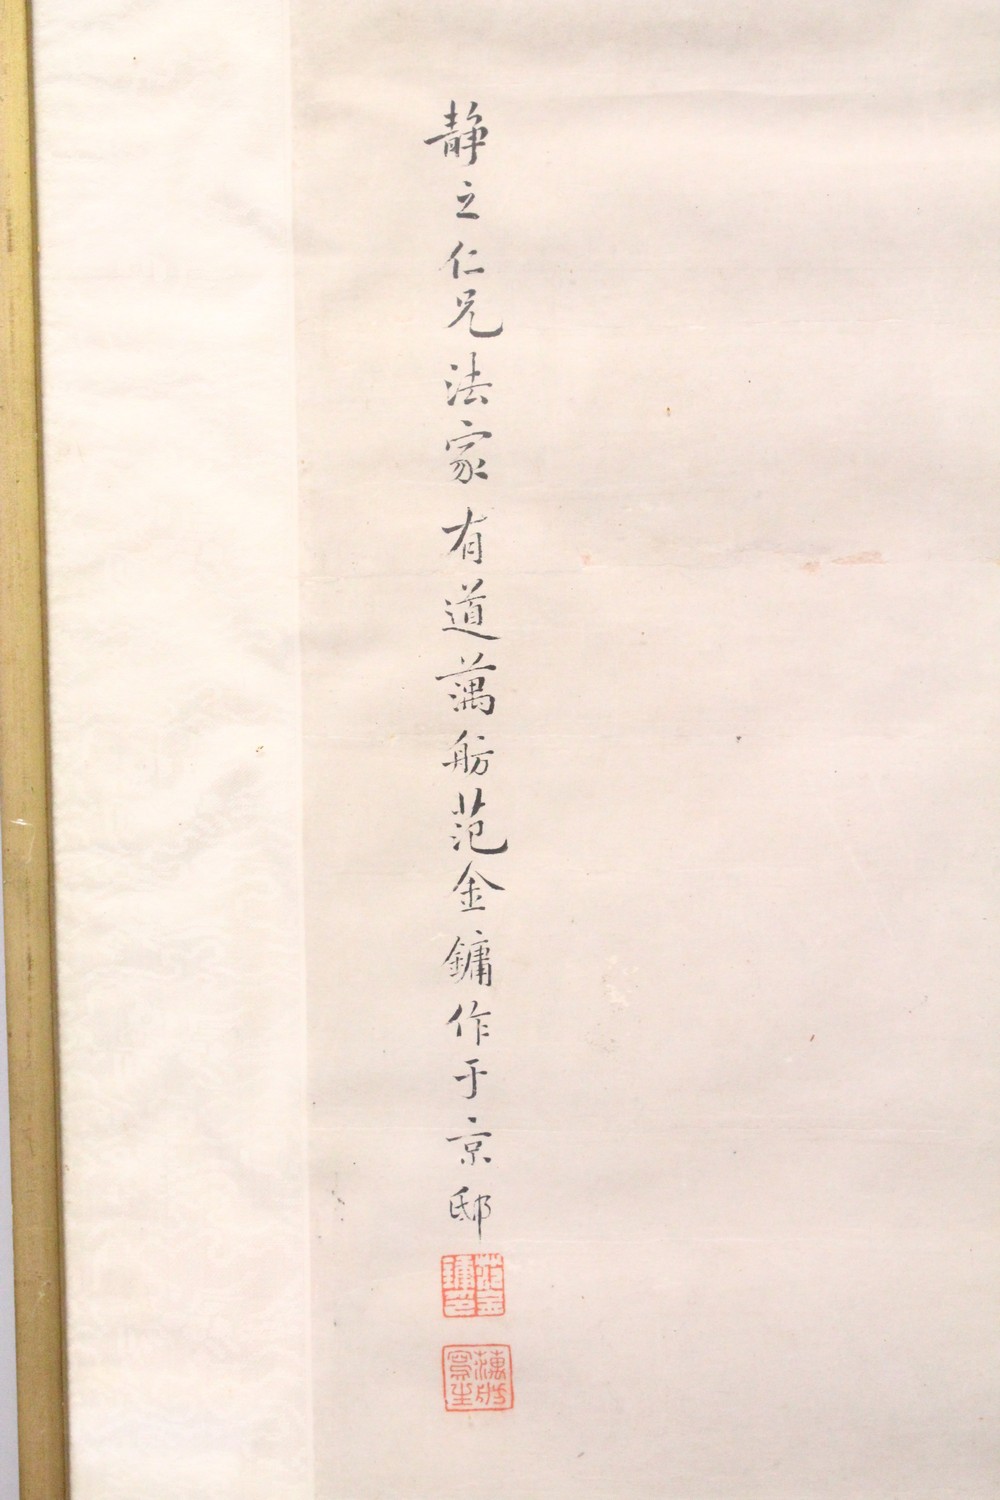 静之仁兄法家有道蕅舫范金鏞作于京邸
范金鏞印
蕅舫寫生